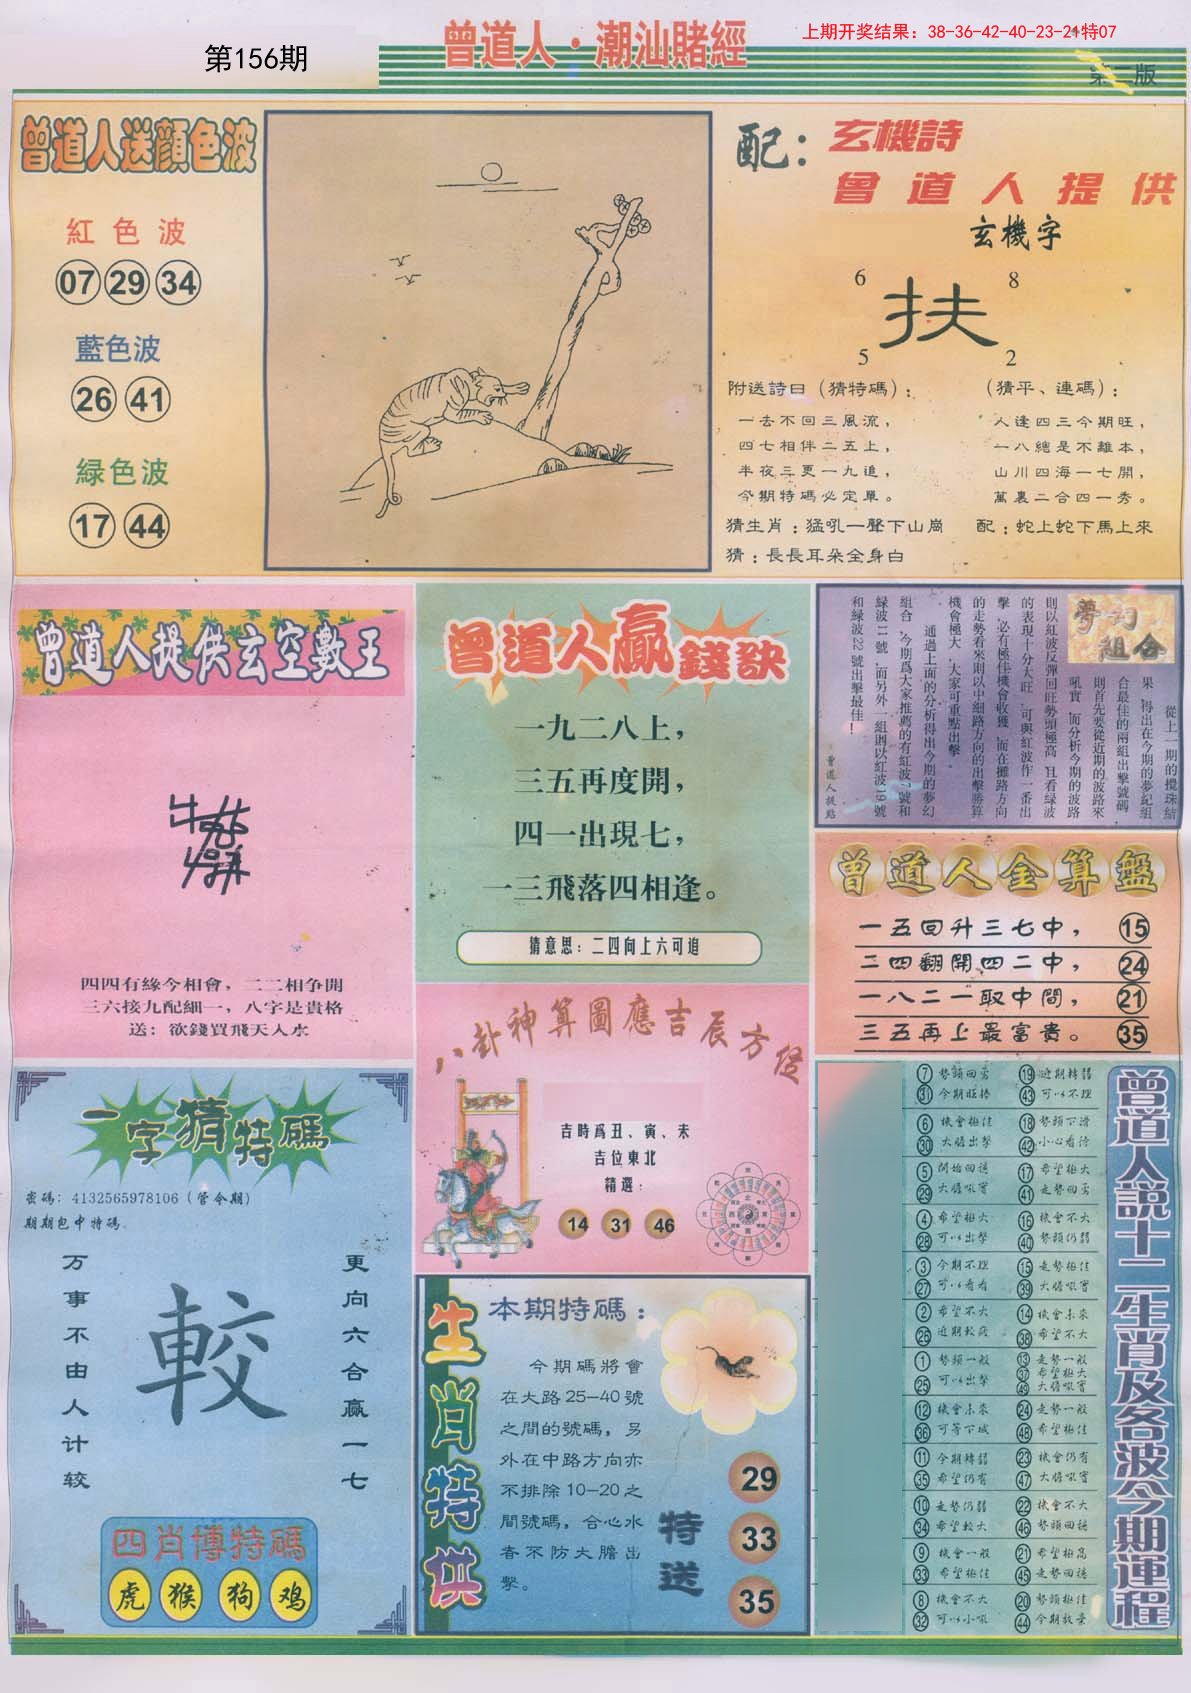 第156期
曾道人·潮汕賭經
上期开奖结果：38-36-42-40-23-21特07
第二版
曾道人送顏色波
紅色波
07 29 34
藍色波
26 41
緑色波
17 44
配：玄機詩
曾道人提供
玄機字
6 8
扶
5 2
附送詩曰（猜特碼）：
一去不回三風流，
四七相伴二五上，
半夜三更一九追，
今期特碼必定單。
（猜平、連碼）：
人逢四三今期旺，
一八總是不離本，
山川四海一七開，
萬裏二合四一秀。
猜生肖：猛吼一聲下山崗
配：蛇上蛇下馬上來
猜：長長耳朵全身白
曾道人提供玄空數王
四四有緣今相會，二二相争開
三六接九配細一，八字是貴格
送：欲錢買飛天入水
曾道人贏錢訣
一九二八上，
三五再度開，
四一出現七，
一三飛落四相逢。
猜意思：二四向上六可追
夢幻組合
從上一期的攪珠結
果，得出在今期的夢幻組
合最佳的兩組出擊號碼，
則首先要從近期的波路來
吼實，而分析今期的波路
則以紅波反彈回旺勢頭極高，且看緑波
的表現十分大旺，可與紅波作一番出
擊，必有極佳機會收獲，而在攤路方向
的走勢看來則以中細路方向的出擊勝算
機會極大，大家可重點出擊。
通過上面的分析得出今期的夢幻
組合，今期爲大家推薦的有紅波7號和
緑波11號，而另外一組則以紅波19號
和緑波22號出擊最佳！
曾道人提點
曾道人金算盤
一五回升三七中， 15
二四翻開四二中， 24
一八二一取中間， 21
三五再上最富貴。 35
八卦神算圖應吉辰方從
吉時爲丑、寅、未
吉位東北
精選：
14 31 46
一字猜特碼
密碼：4132565978106（管令期）
期期包中特碼
万事不由人计较
較
更向六合赢一七
四肖博特碼
虎 猴 狗 鸡
生肖特供
本期特碼：
今期碼將會
在大路25—40號
之間的號碼，另
外在中路方向亦
不排除10—20之
間號碼，合心水
者不防大膽出
擊。
特送
29
33
35
曾道人説十二生肖及各波今期運程
7 勢頭回勇 19 近期轉弱
31 今期旺捧 43 可以不理
6 機會極佳 18 勢頭下滑
30 大膽出擊 42 小心看待
5 開始回穩 17 希望極大
29 大膽吼實 41 走勢回勇
4 希望極大 16 機會不大
28 可以出擊 40 勢頭仍弱
3 今期不理 15 走勢極佳
27 可以看看 39 大膽吼實
2 希望不大 14 機會未來
26 近期較疏 38 希望不大
1 勢頭一般 13 走勢一般
25 可以出擊 37 希望極大
49 大膽吼實
12 機會未來 24 走勢一般
36 可等下城 48 希望極佳
11 今期轉弱 23 機會仍有
35 希望仍有 47 大膽吼實
10 走勢仍弱 22 機會不大
34 希望較大 46 勢頭回穩
9 機會一般 21 希望極高
33 希望極佳 45 走勢回穩
8 機會不大 20 勢頭極佳
32 可以小吼 44 今期放棄